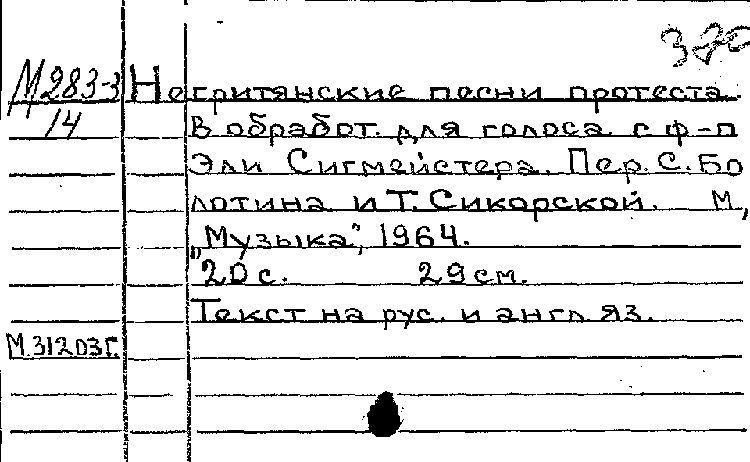 320
М283-3 Негритянские песни протеста.
14 В обработ. для голоса с ф-п
Эли Сигмейстера. Пер. С. Бо
лотина и Т. Сикорской. М.,
„Музыка", 1964.
20 с. 29 см.
Текст на рус. и англ яз.
М.31203Г.